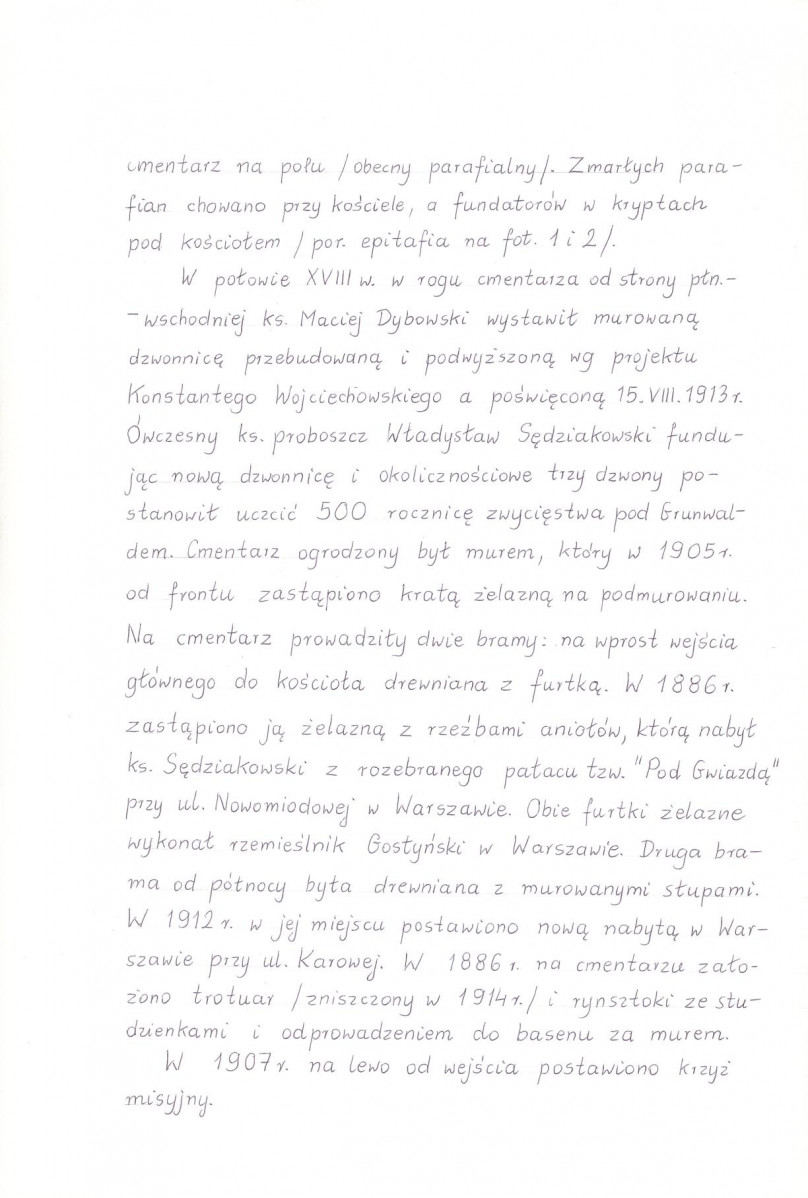 cmentarz na połu /obecny parafialny/. Zmarłych para-
fian chowano przy kościele, a fundatorów w kryptach
pod kościołem /por. epitafia na fot. 1 i 2/.
W połowie XVIII w. w rogu cmentarza od strony płn.-
-wschodniej ks. Maciej Dybowski wystawił murowaną
dzwonnicę przebudowaną i podwyższoną wg projektu
Konstantego Wojciechowskiego a poświęconą 15.VIII.1913 r.
Ówczesny ks. proboszcz Władysław Sędziakowski fundu-
jąc nową dzwonnicę i okolicznościowe trzy dzwony po-
stanowił uczcić 500 rocznicę zwycięstwa pod Grunwal-
dem. Cmentarz ogrodzony był murem, który w 1905 r.
od frontu zastąpiono kratą żelazną na podmurowaniu.
Na cmentarz prowadziły dwie bramy: na wprost wejścia
głównego do kościoła drewniana z furtką. W 1886 r.
zastąpiono ją żelazną z rzeźbami aniołów, którą nabył
ks. Sędziakowski z rozebranego pałacu tzw. "Pod Gwiazdą"
przy ul. Nowomiodowej w Warszawie. Obie furtki żelazne
wykonał rzemieślnik Gostyński w Warszawie. Druga bra-
ma od północy była drewniana z murowanymi słupami.
W 1912 r. w jej miejscu postawiono nową nabytą w War-
szawie przy ul. Karowej. W 1886 r. na cmentarzu zało-
żono trotuar /zniszczony w 1914 r./ i rynsztoki ze stu-
dzienkami i odprowadzeniem do basenu za murem.
W 1907 r. na lewo od wejścia postawiono krzyż
misyjny.